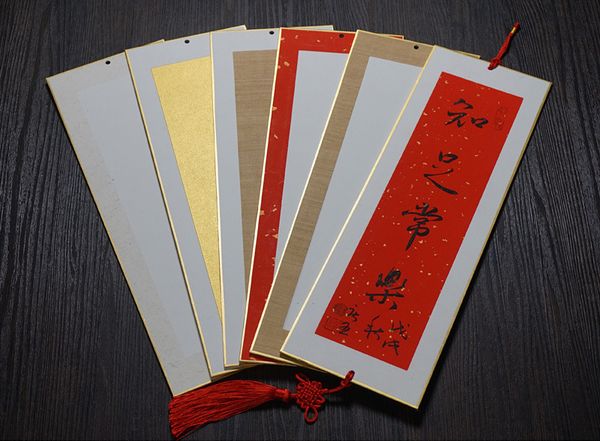 知足常樂
戊戌
秋